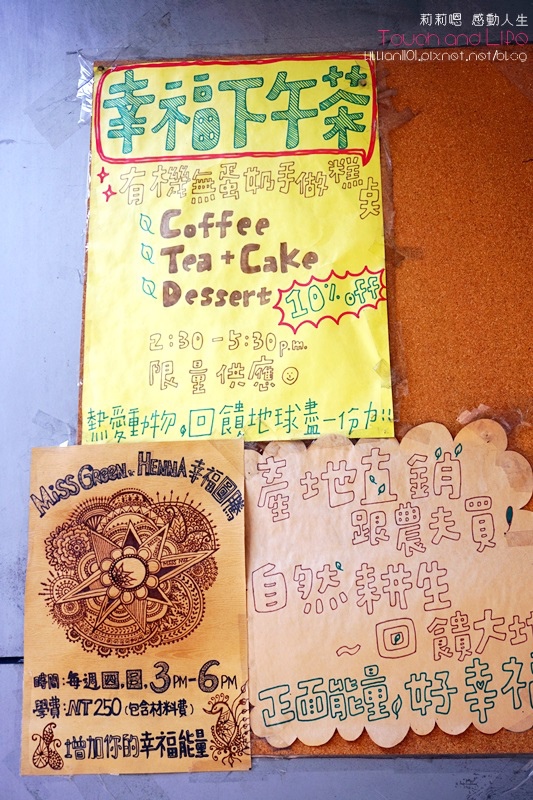 莉莉嗯 感動人生
Touch and LIFE
LILLIAN1101.pixnet.net/blog
幸福下午茶
有機無蛋奶手做糕點
Coffee
Tea + Cake
Dessert 10% off
2:30-5:30 p.m.
限量供應
熱愛動物,回饋地球盡一份力!!
MISS GREEN & HENNA 幸福圖騰
時間:每週四.日 3PM-6PM
學費:NT250 (包含材料費)
增加你的幸福能量
產地直銷
跟農夫買
自然耕生
~回饋大地
正面能量,好幸福